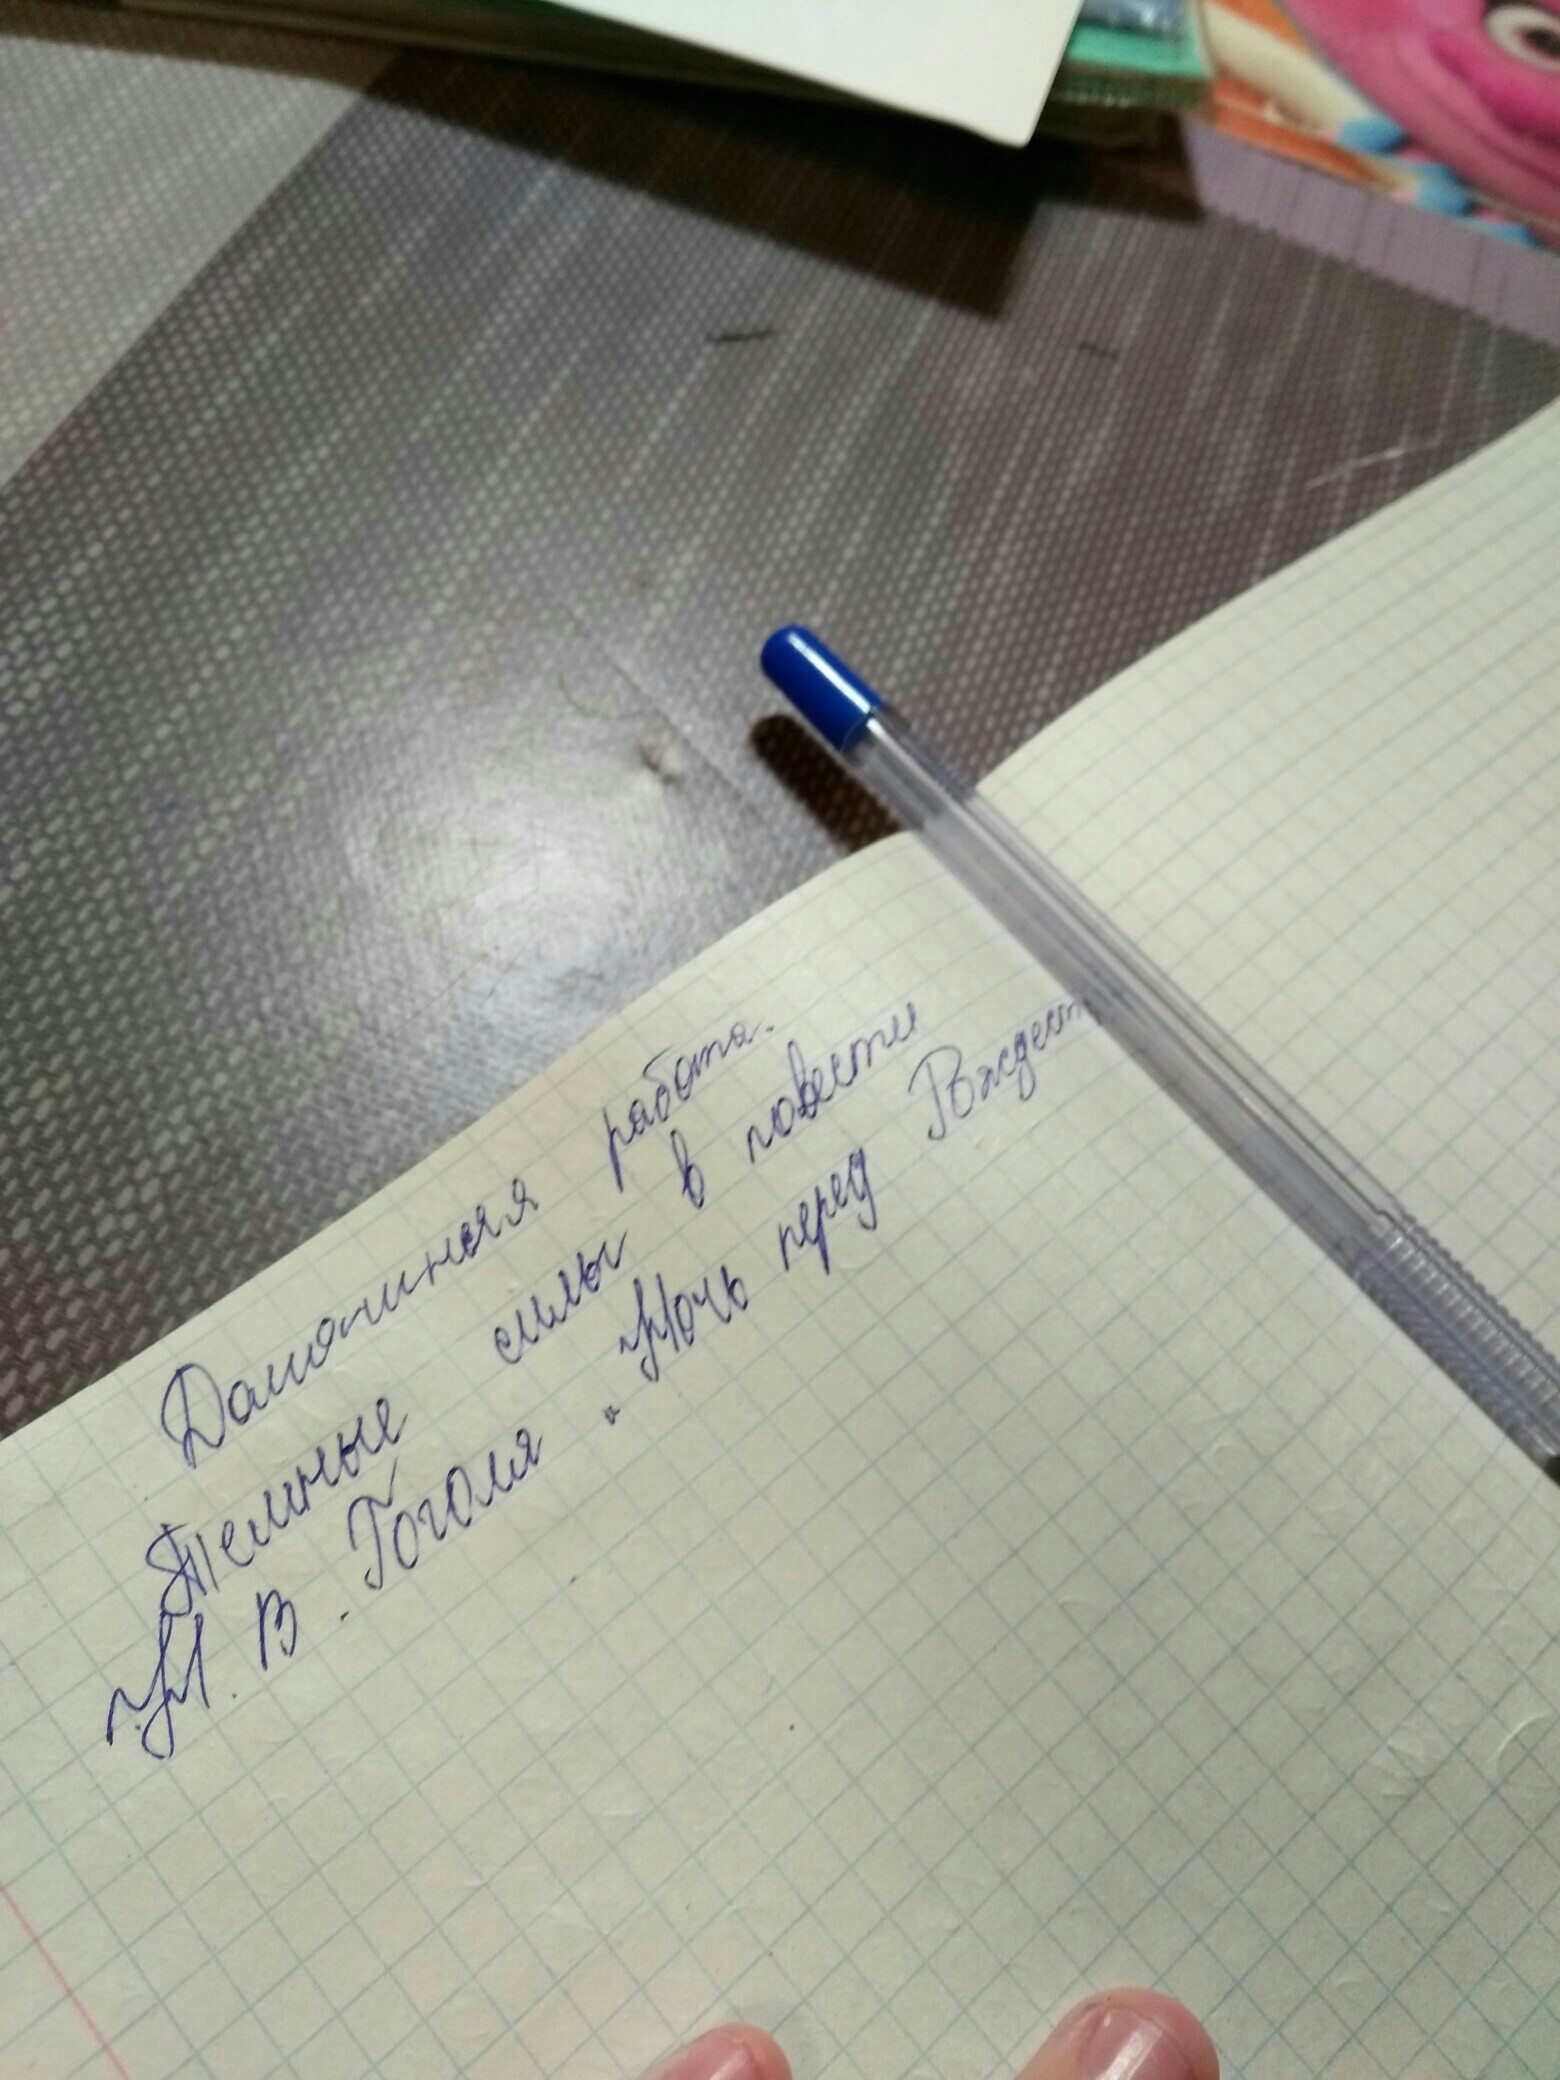 Домашняя работа.
Темные силы в повести
Н. В. Гоголя "Ночь перед Рождест